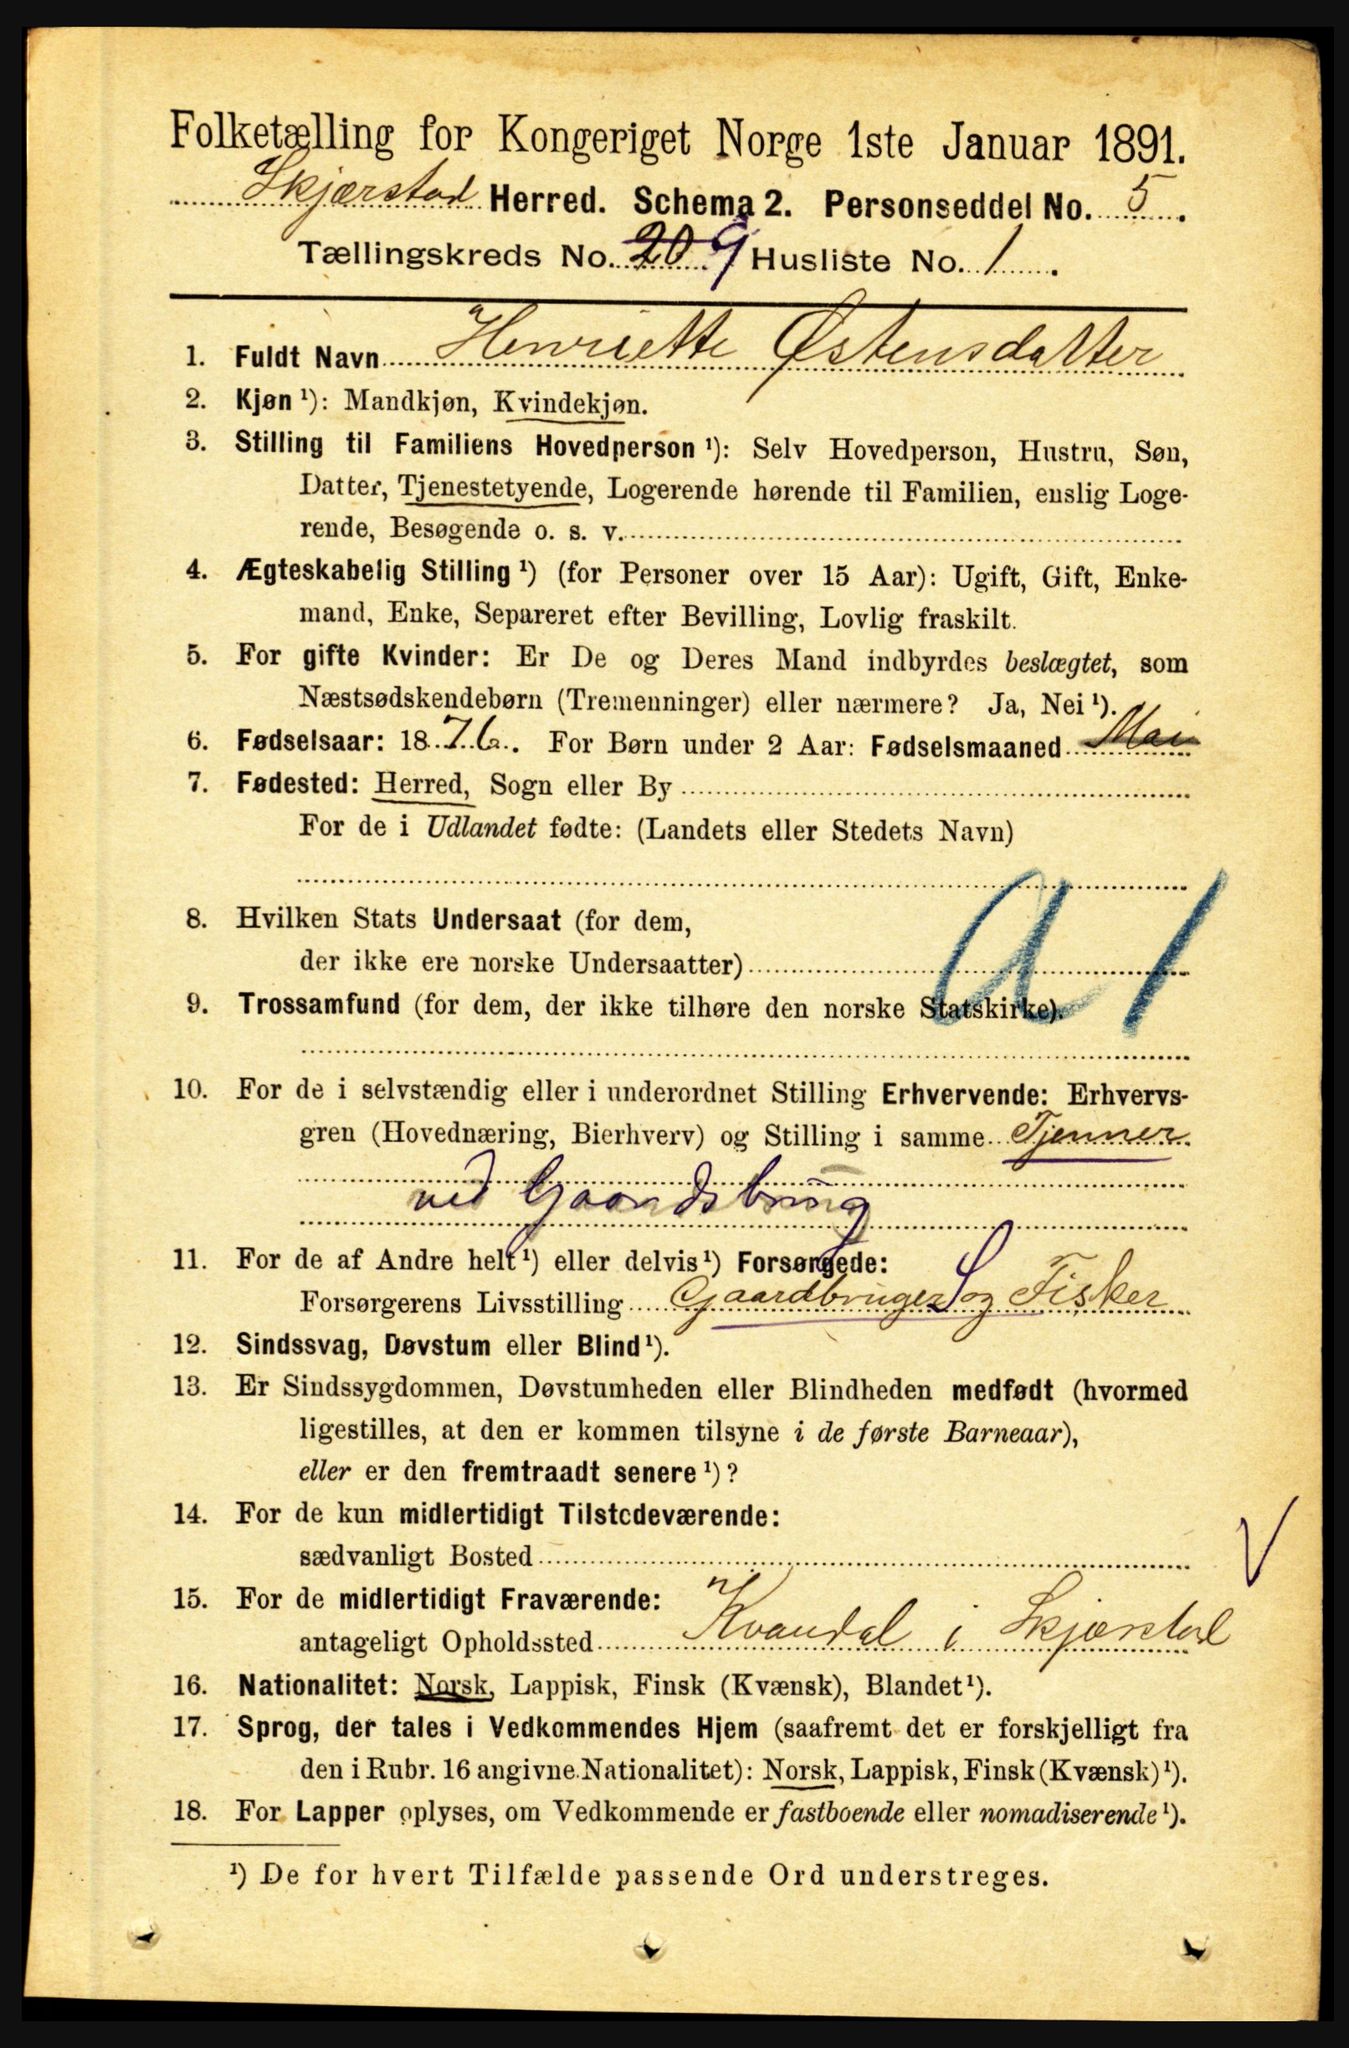 Folketælling for Kongeriget Norge 1ste Januar 1891.
Skjærstad Herred. Schema 2. Personseddel No. 5.
Tællingskreds No. 20 9 Husliste No. 1.
1. Fuldt Navn Henriette Østensdatter
2. Kjøn ¹): Mandkjøn, Kvindekjøn.
3. Stilling til Familiens Hovedperson ¹): Selv Hovedperson, Hustru, Søn,
Datter, Tjenestetyende, Logerende hørende til Familien, enslig Loge-
rende, Besøgende o. s. v.
4. Ægteskabelig Stilling ¹) (for Personer over 15 Aar): Ugift, Gift, Enke-
mand, Enke, Separeret efter Bevilling, Lovlig fraskilt.
5. For gifte Kvinder: Er De og Deres Mand indbyrdes beslægtet, som
Næstsødskendebørn (Tremenninger) eller nærmere? Ja, Nei ¹).
6. Fødselsaar: 1876. For Børn under 2 Aar: Fødselsmaaned Mai
7. Fødested: Herred, Sogn eller By
For de i Udlandet fødte: (Landets eller Stedets Navn)
a 1
8. Hvilken Stats Undersaat (for dem,
der ikke ere norske Undersaatter)
9. Trossamfund (for dem, der ikke tilhøre den norske Statskirke).
10. For de i selvstændig eller i underordnet Stilling Erhvervende: Erhvervs-
gren (Hovednæring, Bierhverv) og Stilling i samme Tjenner
ved Gaardsbrug
11. For de af Andre helt ¹) eller delvis ¹) Forsørgede:
Forsørgerens Livsstilling Gaardbruger S og Fisker
12. Sindssvag, Døvstum eller Blind ¹).
13. Er Sindssygdommen, Døvstumheden eller Blindheden medfødt (hvormed
ligestilles, at den er kommen tilsyne i de første Barneaar),
eller er den fremtraadt senere ¹)?
14. For de kun midlertidigt Tilstedeværende:
sædvanligt Bosted
15. For de midlertidigt Fraværende:
antageligt Opholdssted Kvandal i Skjærstad
16. Nationalitet: Norsk, Lappisk, Finsk (Kvænsk), Blandet ¹).
17. Sprog, der tales i Vedkommendes Hjem (saafremt det er forskjelligt fra
den i Rubr. 16 angivne Nationalitet): Norsk, Lappisk, Finsk (Kvænsk) ¹).
18. For Lapper oplyses, om Vedkommende er fastboende eller nomadiserende ¹).
¹) De for hvert Tilfælde passende Ord understreges.